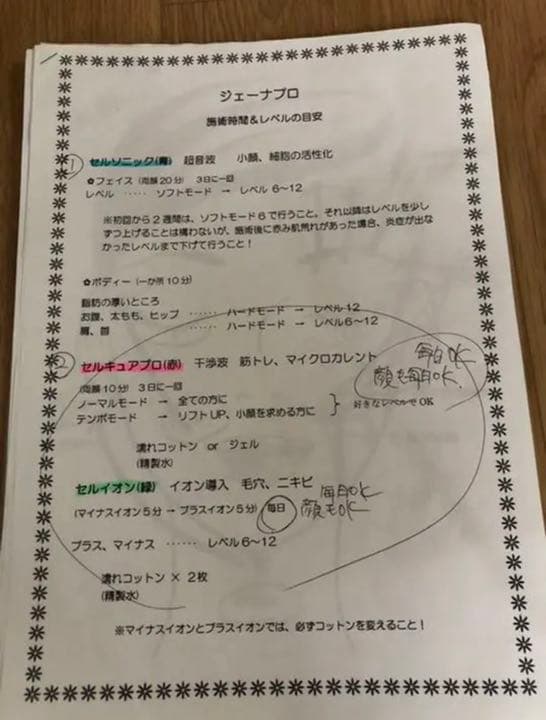 ジェーナプロ
施術時間&レベルの目安
① セルソニック(青) 超音波 小顔、細胞の活性化
✿フェイス (両顔20分) 3日に一回
レベル ‥‥‥ ソフトモード → レベル6~12
※初回から2週間は、ソフトモード6で行うこと。それ以降はレベルを少し
ずつ上げることは構わないが、施術後に赤み肌荒れがあった場合、炎症が出な
かったレベルまで下げて行うこと!
✿ボディー (一か所10分)
脂肪の厚いところ
お腹、太もも、ヒップ ‥‥‥ ハードモード → レベル12
肩、首 ‥‥‥ ハードモード → レベル6~12
② セルキュアプロ(赤) 干渉波 筋トレ、マイクロカレント
毎日OK
顔も毎日OK.
(両顔10分) 3日に一回
ノーマルモード → 全ての方に
テンポモード → リフトUP、小顔を求める方に
好きなレベルでOK
濡れコットン or ジェル
(精製水)
セルイオン(緑) イオン導入 毛穴、ニキビ
毎日OK
(マイナスイオン5分 → プラスイオン5分) 毎日 顔もOK
プラス、マイナス ‥‥‥ レベル6~12
濡れコットン × 2枚
(精製水)
※マイナスイオンとプラスイオンでは、必ずコットンを変えること!